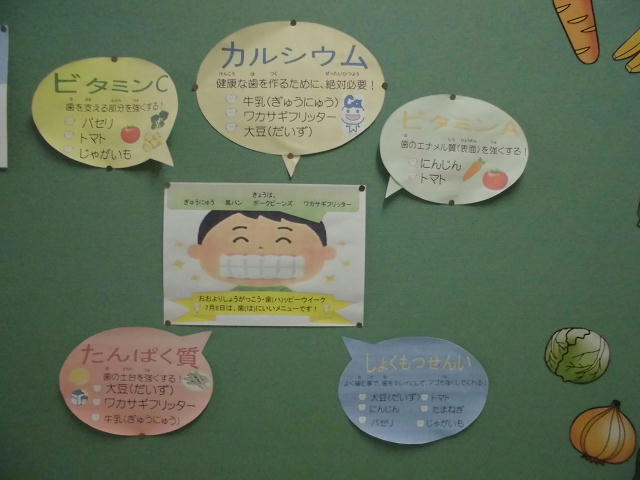 カルシウム
健康な歯を作るために、絶対必要!
牛乳(ぎゅうにゅう)
ワカサギフリッター
大豆(だいず)
ビタミンC
歯を支える部分を強くする!
パセリ
トマト
じゃがいも
ビタミンA
歯のエナメル質(表面)を強くする!
にんじん
トマト
きょうは、
ぎゅうにゅう 黒パン ポークビーンズ ワカサギフリッター
おおよりしょうがっこう・歯(ハ)ッピーウイーク
7月8日は、歯(は)にいいメニューです!
たんぱく質
歯の土台を強くする!
大豆(だいず)
ワカサギフリッター
牛乳(ぎゅうにゅう)
しょくもつせんい
大豆(だいず) トマト
にんじん たまねぎ
パセリ じゃがいも